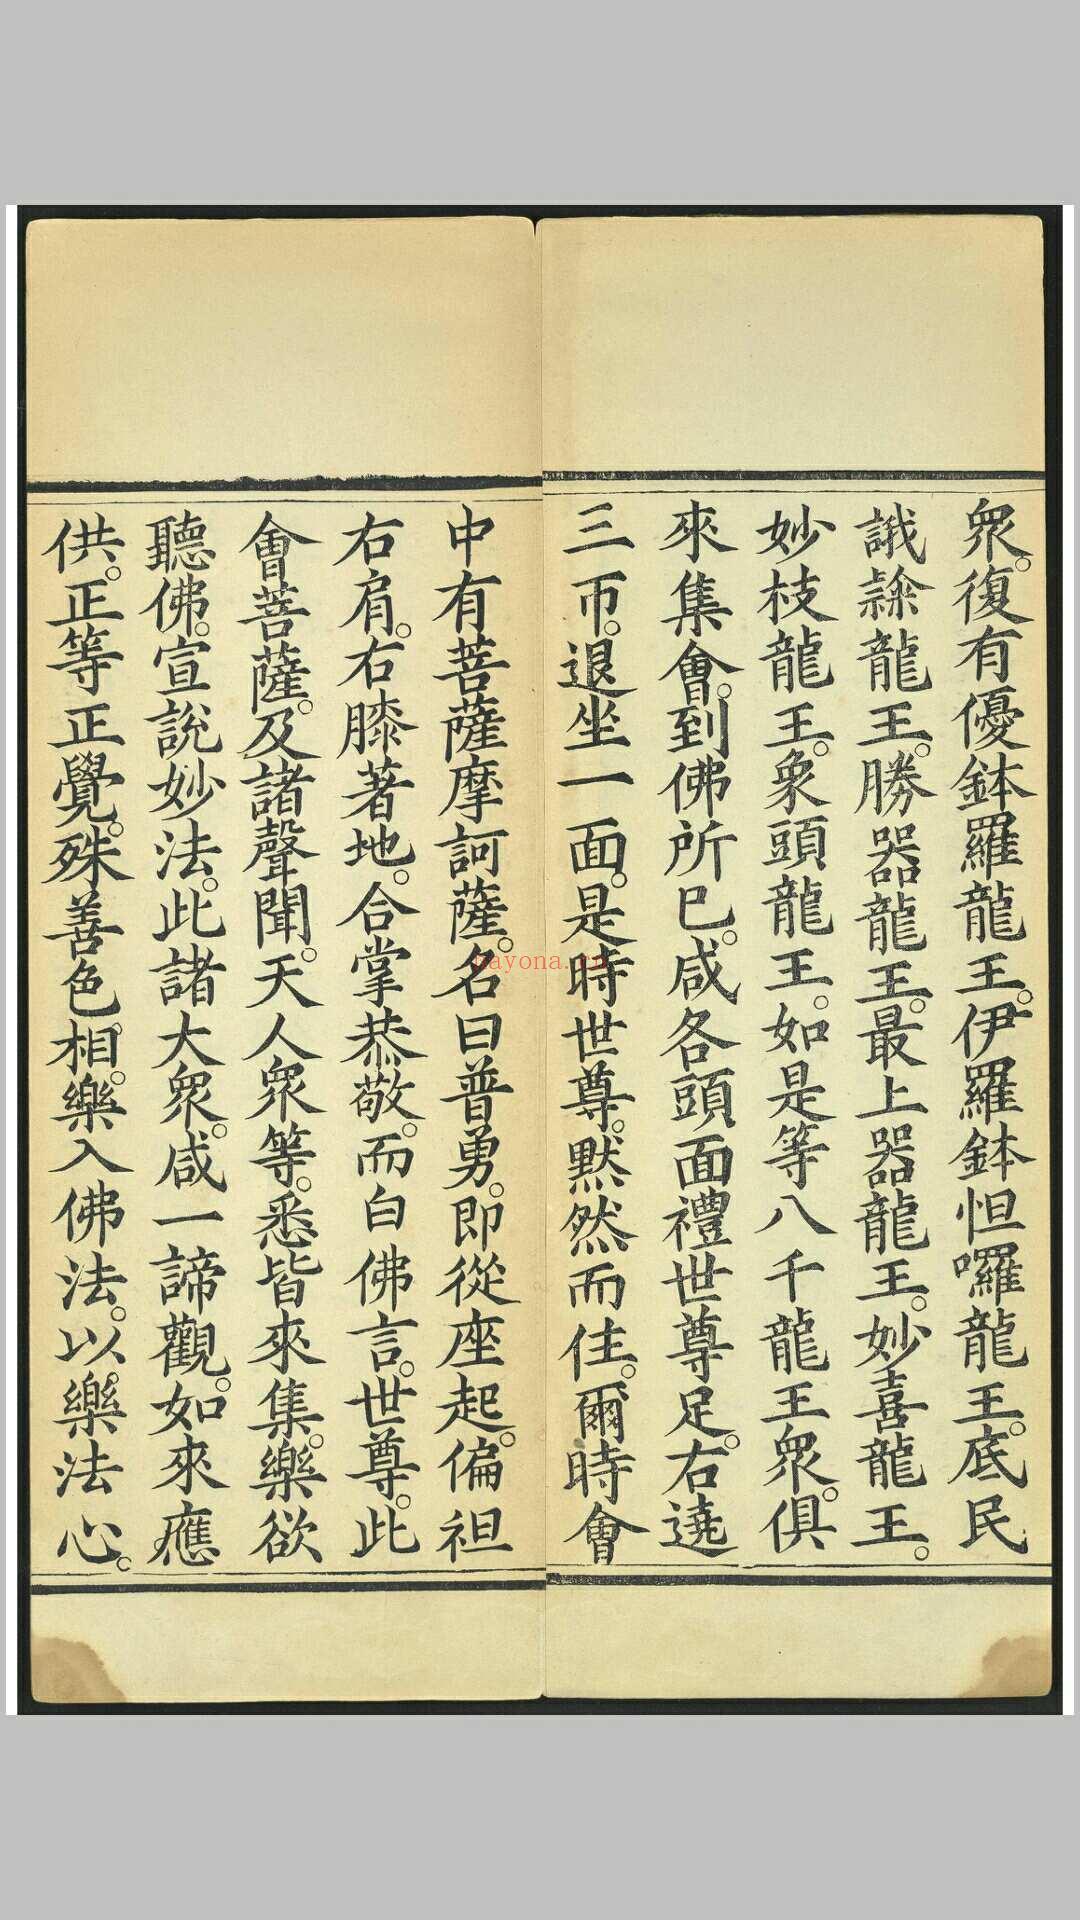 衆。復有優鉢羅龍王。伊羅鉢怛囉龍王。底民
誐龍王。勝器龍王。最上器龍王。妙喜龍王。
妙枝龍王。象頭龍王。如是等八千龍王衆。俱
來集會。到佛所已。咸各頭面禮世尊足。右遶
三帀。退坐一面。是時世尊。默然而住。爾時會
中有菩薩摩訶薩。名曰普勇。即從座起。偏袒
右肩。右膝著地。合掌恭敬。而白佛言。世尊。此
會菩薩。及諸聲聞。天人衆等。悉皆來集。樂欲
聽佛。宣說妙法。此諸大衆。咸一諦觀。如來應
供。正等正覺。殊善色相。樂入佛法。以樂法心。